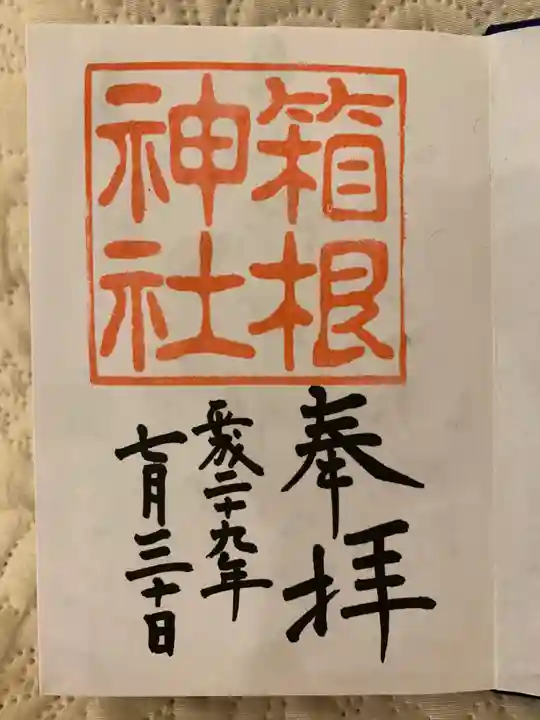 箱根
神社
奉拝
平成二十九年
七月三十日